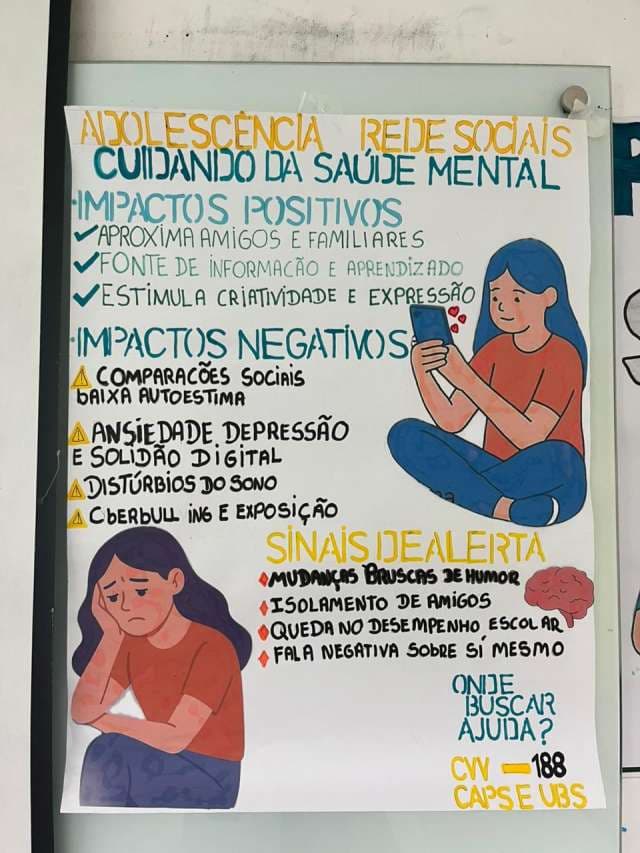 ADOLESCÊNCIA REDE SOCIAIS
CUIDANDO DA SAÚDE MENTAL
·IMPACTOS POSITIVOS
✔APROXIMA AMIGOS E FAMILIARES
✔FONTE DE INFORMACÃO E APRENDIZADO
✔ESTIMULA CRIATIVIDADE E EXPRESSÃO
·IMPACTOS NEGATIVOS
⚠ COMPARACÕES SOCIAIS
bAIXA AUTOESTIMA
⚠ ANSIEDADE DEPRESSÃO
E SOLIDÃO DIGITAL
⚠ DISTÚRBIOS DO SONO
⚠ CberbullING E EXPOSIÇÃO
SINAIS DE ALERTA
♦MUDANÇAS BRUSCAS DE HUMOR
♦ISOLAMENTO DE AMIGOS
♦QUEDA NO DESEMPENHO ESCOLAR
♦FALA NEGATIVA SOBRE SÍ MESMO
ONDE
BUSCAR
AJUDA?
CVV — 188
CAPS E UBS